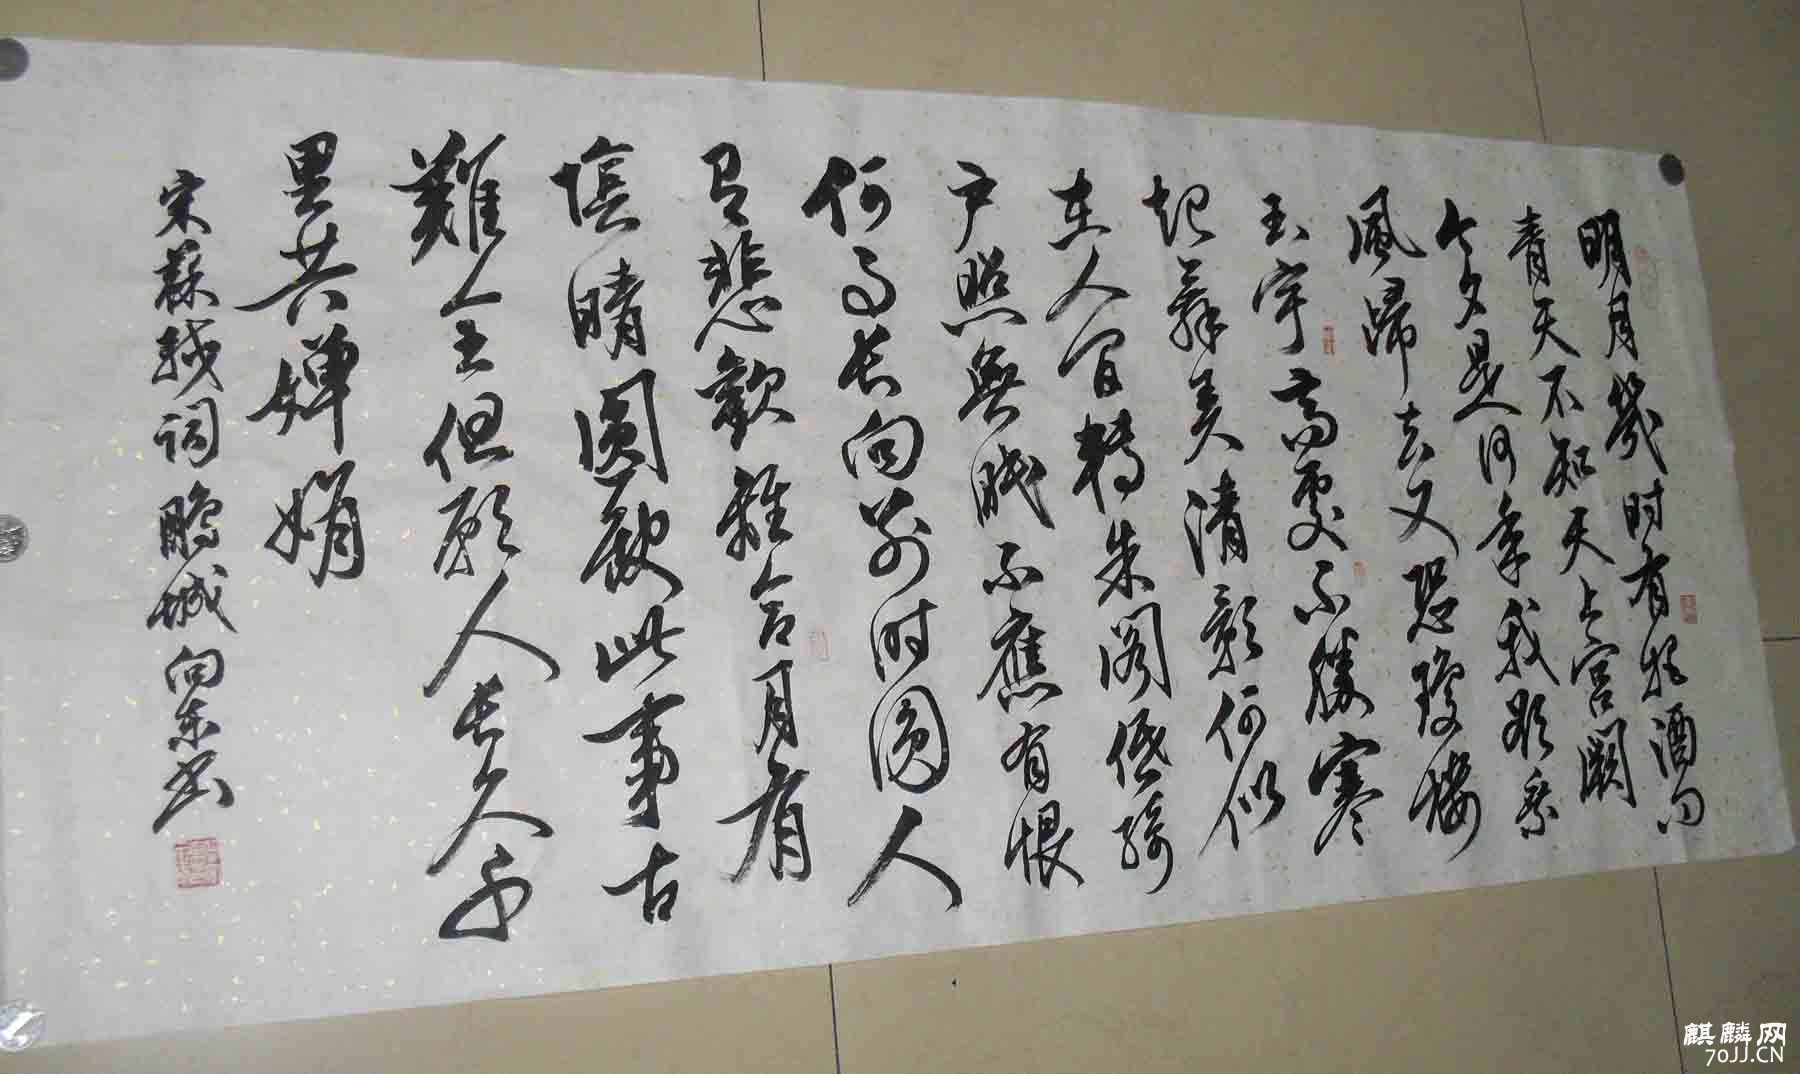 明月幾时有把酒问
青天不知天上宫阙
今夕是何年我欲乘
風歸去又恐瓊楼
玉宇高處不勝寒
起舞弄清影何似
在人间轉朱阁低绮
户照無眠不應有恨
何事长向别时圆人
有悲歡離合月有
陰晴圆缺此事古
難全但願人长久千
里共婵娟
宋蘇軾词鹏城向东书
麒麟网
70JJ.CN